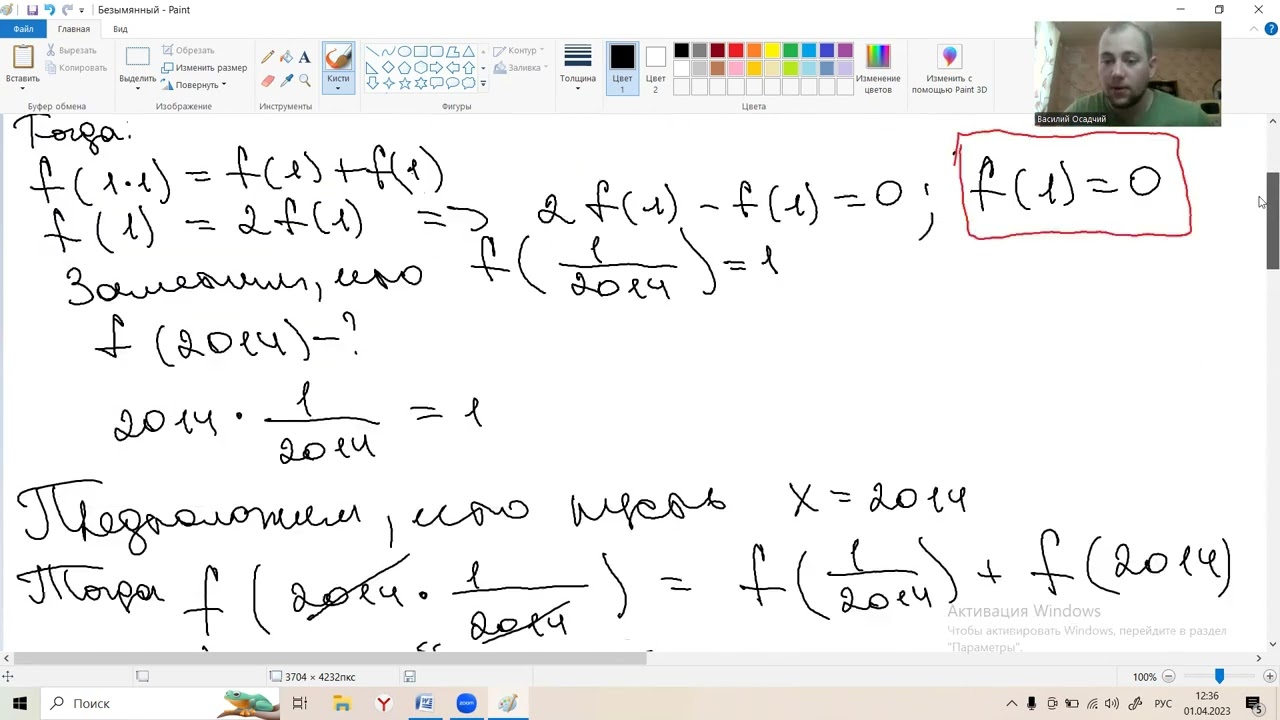 Безымянный - Paint
Файл Главная Вид
Вставить
Вырезать
Копировать
Буфер обмена
Выделить
Обрезать
Изменить размер
Повернуть
Изображение
Инструменты
Кисти
Контур
Заливка
Фигуры
Толщина
Цвет 1
Цвет 2
Цвета
Изменение цветов
Изменить с помощью Paint 3D
Василий Осадчий
Тогда:
f(1·1) = f(1)+f(1)
f(1) = 2f(1) => 2f(1) - f(1) = 0; f(1) = 0
Заметим, что f(1/2014) = 1
f(2014) - ?
2014 · 1/2014 = 1
Предположим, что пусть x = 2014
Тогда f(2014 · 1/2014) = f(1/2014) + f(2014)
Активация Windows
Чтобы активировать Windows, перейдите в раздел
"Параметры".
3704 × 4232пкс
100%
Поиск
РУС
12:36
01.04.2023
5